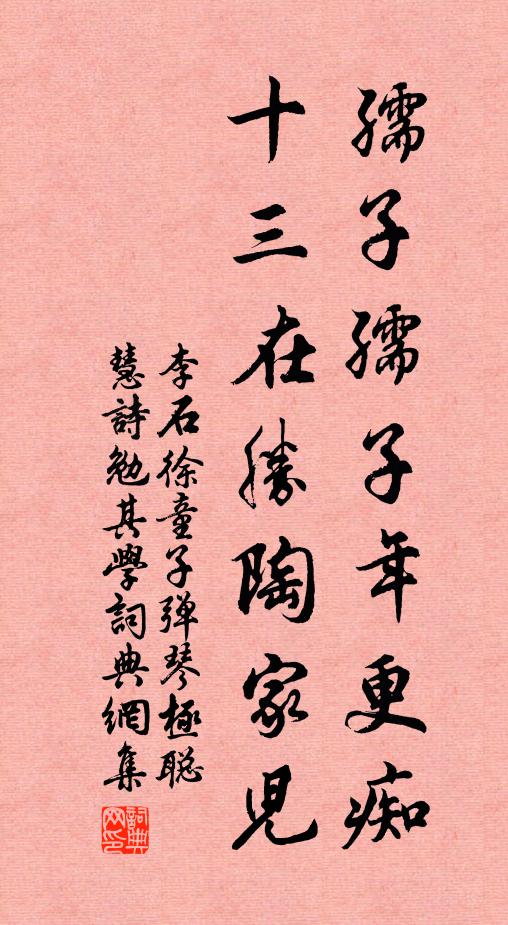 孺子孺子年更痴
十三在勝陶家児
李石徐童子弹琴極聡
慧詩勉其學詞典網集
詞典
网印